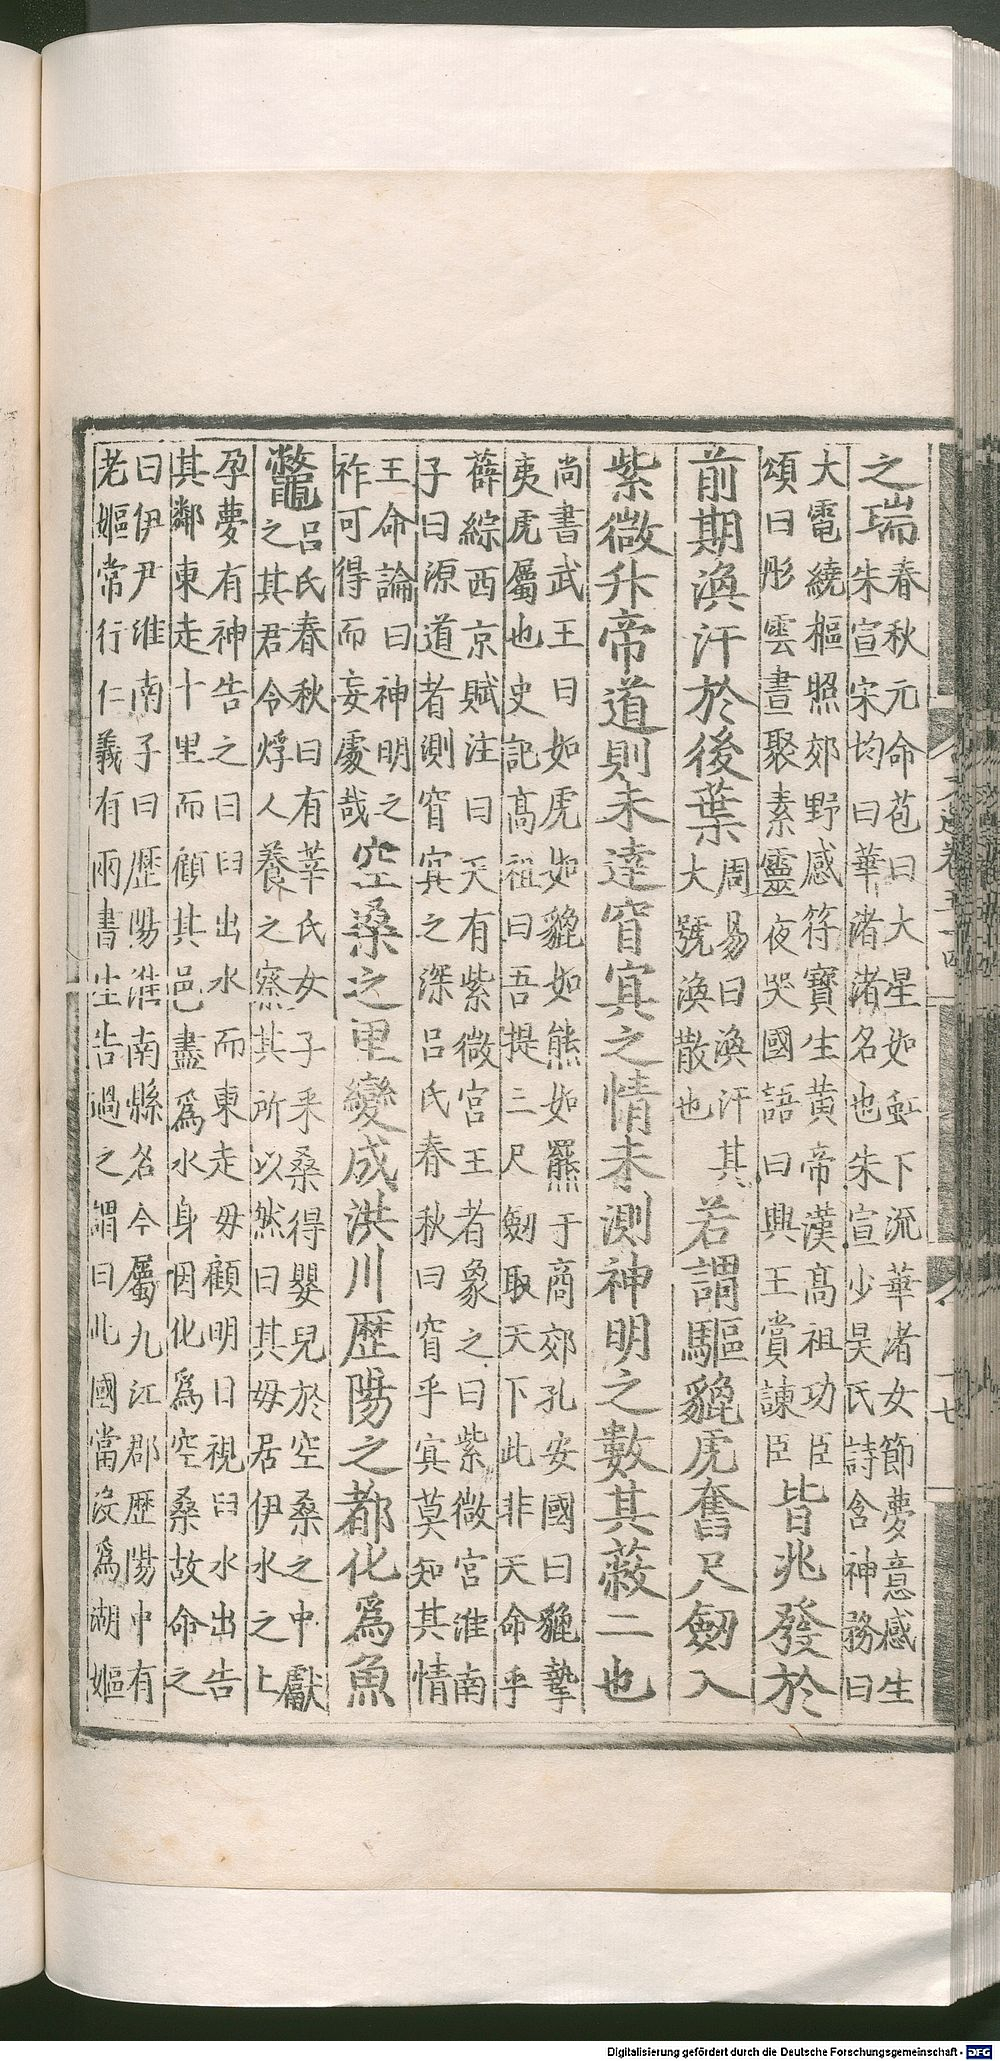 之瑞春秋元命苞曰大星如虹下流華渚女節夢意感生
朱宣宋均曰華渚渚名也朱宣少昊氏詩含神務曰
大電繞樞照郊野感符寶生黃帝漢髙祖功臣
頌曰彤雲晝聚素靈夜哭國語曰興王賞諫臣皆兆發於
前期渙汗於後葉周易曰渙汗其
大號渙散也若謂驅貔虎奮尺劒入
紫微升帝道則未達窅冥之情未測神明之數其蔽二也
尚書武王曰如虎如貔如熊如羆于商郊孔安國曰貔摯
夷虎屬也史記髙祖曰吾提三尺劒取天下此非天命乎
薛綜西京賦注曰天有紫微宮王者象之曰紫微宮淮南
子曰源道者測窅冥之深呂氏春秋曰窅乎冥莫知其情
王命論曰神明之
祚可得而妄處哉空桑之里變成洪川歷陽之都化爲魚
鼈呂氏春秋曰有莘氏女子采桑得嬰兒於空桑之中獻
之其君令烰人養之察其所以然曰其母居伊水之上
孕夢有神告之曰臼出水而東走毋顧明日視臼水出告
其鄰東走十里而顧其邑盡爲水身因化爲空桑故命之
曰伊尹淮南子曰歷陽淮南縣名今屬九江郡歷陽中有
老嫗常行仁義有兩書生告過之謂曰此國當沒爲湖嫗
十七
Digitalisierung gefördert durch die Deutsche Forschungsgemeinschaft - DFG